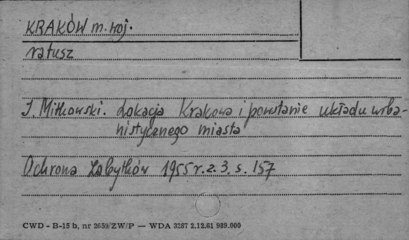 KRAKÓW m. woj.
ratusz
J. Mitkowski. Lokacja Krakowa i powstanie układu urba-
nistycznego miasta
Ochrona Zabytków 1955 r. z. 3. s. 157
CWD - B-15 b, nr 2659/ZW/P — WDA 3287 2.12.61 989.000